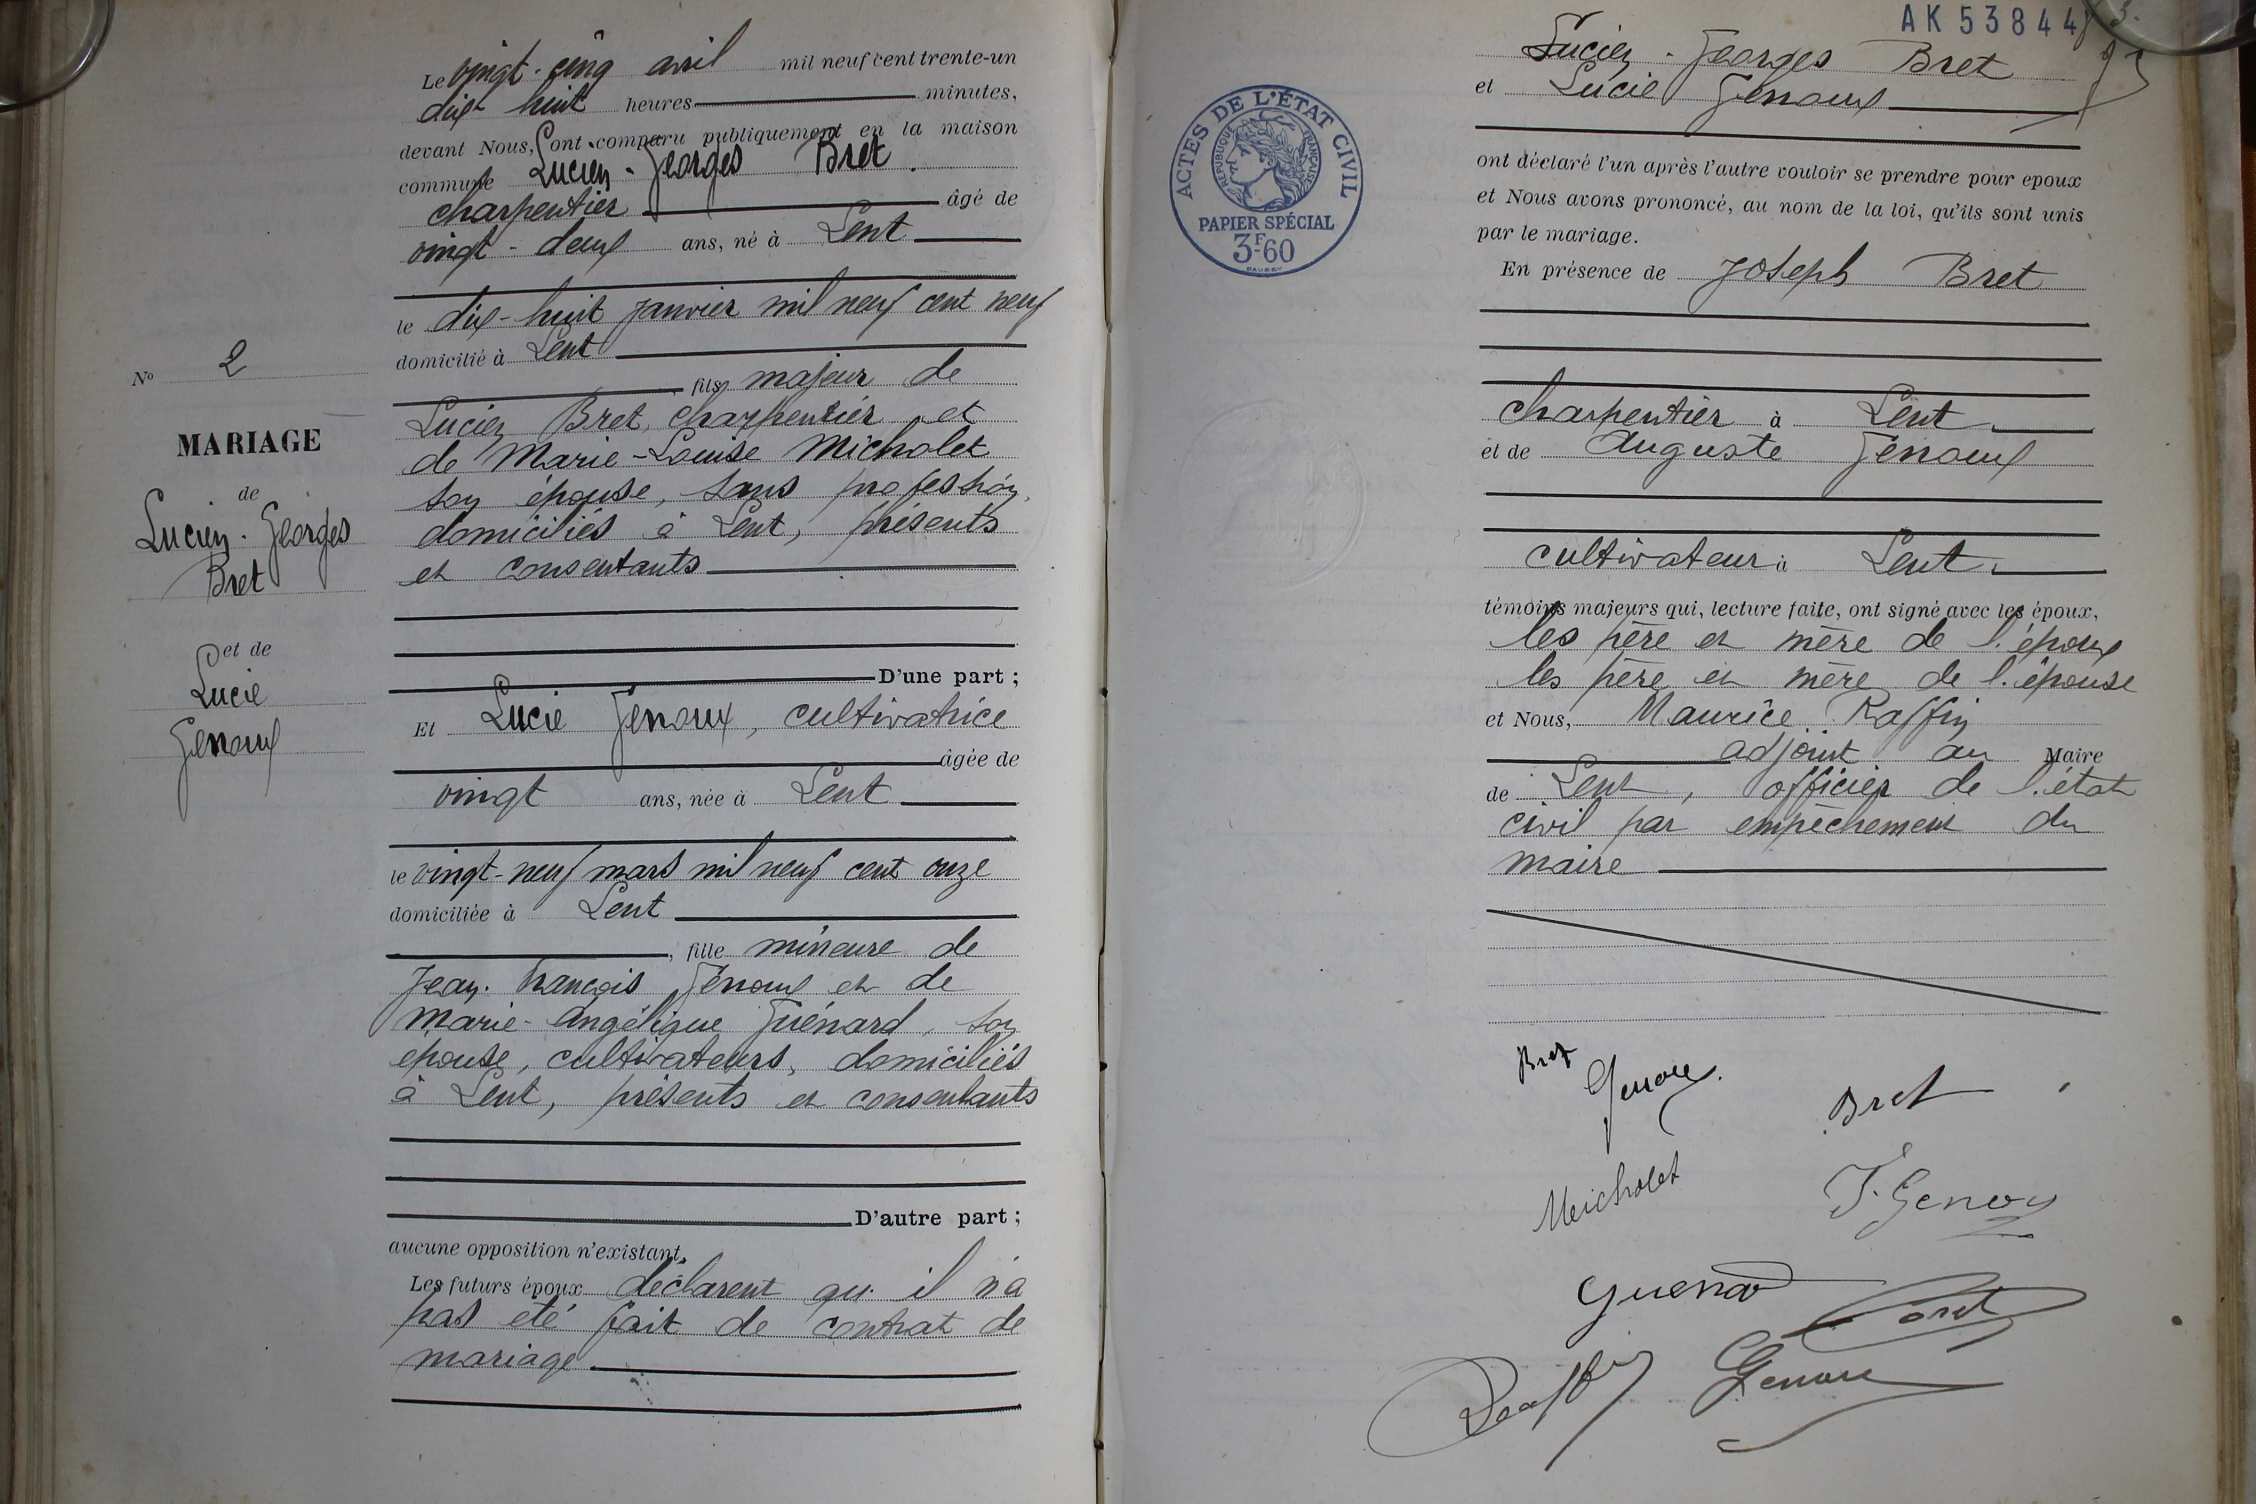 Le vingt-cinq avril mil neuf cent trente-un
dix huit heures minutes,
devant Nous, ont comparu publiquement en la maison
commune Lucien-Georges Bret
charpentier âgé de
vingt-deux ans, né à Lent
le dix-huit janvier mil neuf cent neuf
domicilié à Lent
fils majeur de
Lucien Bret, charpentier et
de Marie-Louise Micholet
son épouse, sans profession,
domiciliés à Lent, présents
et consentants
D'une part ;
Et Lucie Genoux, cultivatrice
âgée de
vingt ans, née à Lent
le vingt-neuf mars mil neuf cent onze
domiciliée à Lent
, fille mineure de
Jean-François Genoux et de
Marie-Angélique Guénard, son
épouse, cultivateurs, domiciliés
à Lent, présents et consentants
D'autre part ;
aucune opposition n'existant,
Les futurs époux déclarent qu'il n'a
pas été fait de contrat de
mariage
No 2
MARIAGE
de
Lucien-Georges
Bret
et de
Lucie
Genoux
AK 53844
3.
ACTES DE L'ÉTAT CIVIL
RÉPUBLIQUE FRANÇAISE
PAPIER SPÉCIAL
3F60
Lucien-Georges Bret
et Lucie Genoux
ont déclaré l'un après l'autre vouloir se prendre pour epoux
et Nous avons prononcé, au nom de la loi, qu'ils sont unis
par le mariage.
En présence de Joseph Bret
charpentier à Lent
et de Auguste Genoux
cultivateur à Lent
témoins majeurs qui, lecture faite, ont signé avec les époux,
les père et mère de l'époux
les père et mère de l'épouse
et Nous, Maurice Raffin
adjoint au Maire
de Lent, officier de l'état
civil par empêchement du
maire
Bret
Genoux
Bret
Meicholet
J. Genoux
Guenard
Genoux
Raffin